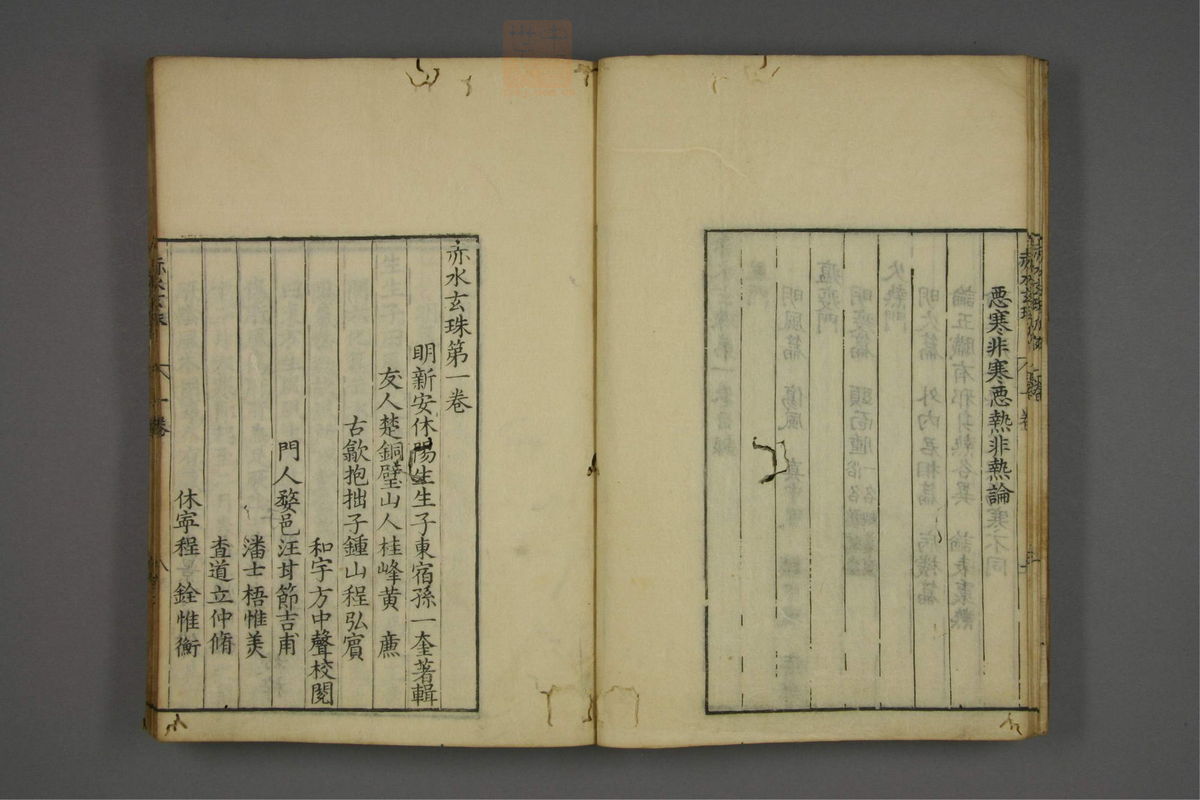 惡寒非寒惡熱非熱論
赤水玄珠
一卷
赤水玄珠第一卷
明新安休陽生生子東宿孫一奎著輯
友人楚銅壁山人桂峰黃 廌
古歙抱拙子鍾山程弘賓
和宇方中聲校閱
門人婺邑汪甘節吉甫
潘士梧惟美
查道立仲脩
休寧程 銓惟衡
赤水玄珠
一卷